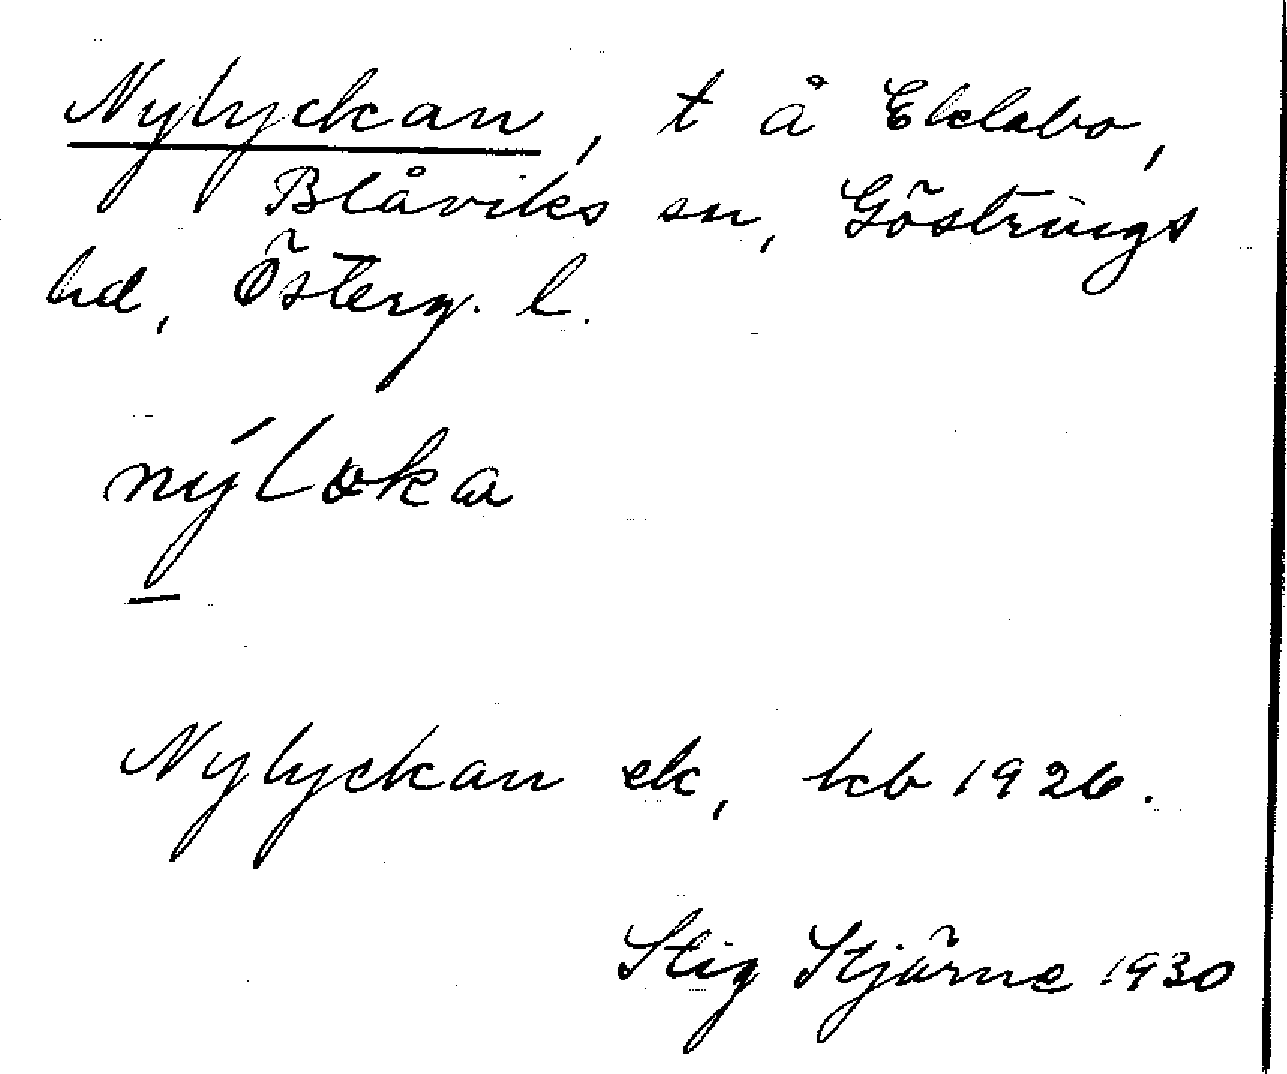 Nylyckan, t å Eklabo,
Blåviks sn, Göstrings
hd, Österg. l.
nýloka
Nylyckan ek, kb 1926.
Stig Stjärne 1930